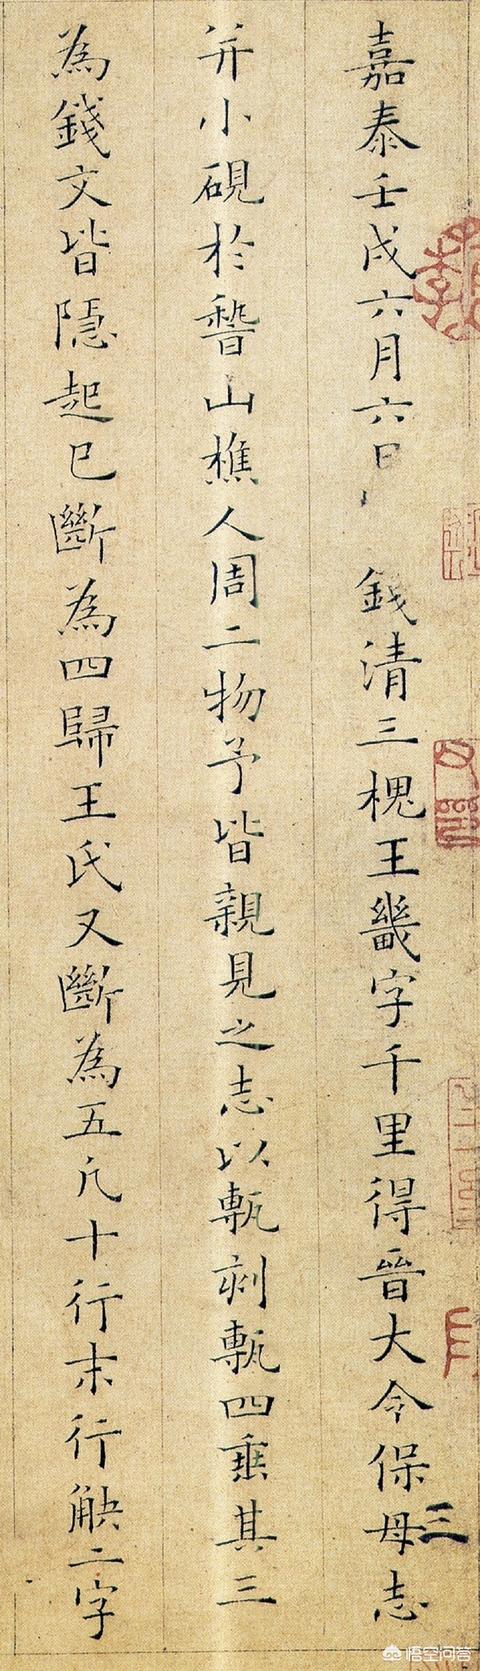 嘉泰壬戌六月六日 錢清三槐王畿字千里得晉大令保母志
并小硯於稽山樵人周二物予皆親見之志以甎刻甎四垂其三
為錢文皆隱起已斷為四歸王氏又斷為五凡十行末行觖二字
三
悟空问答